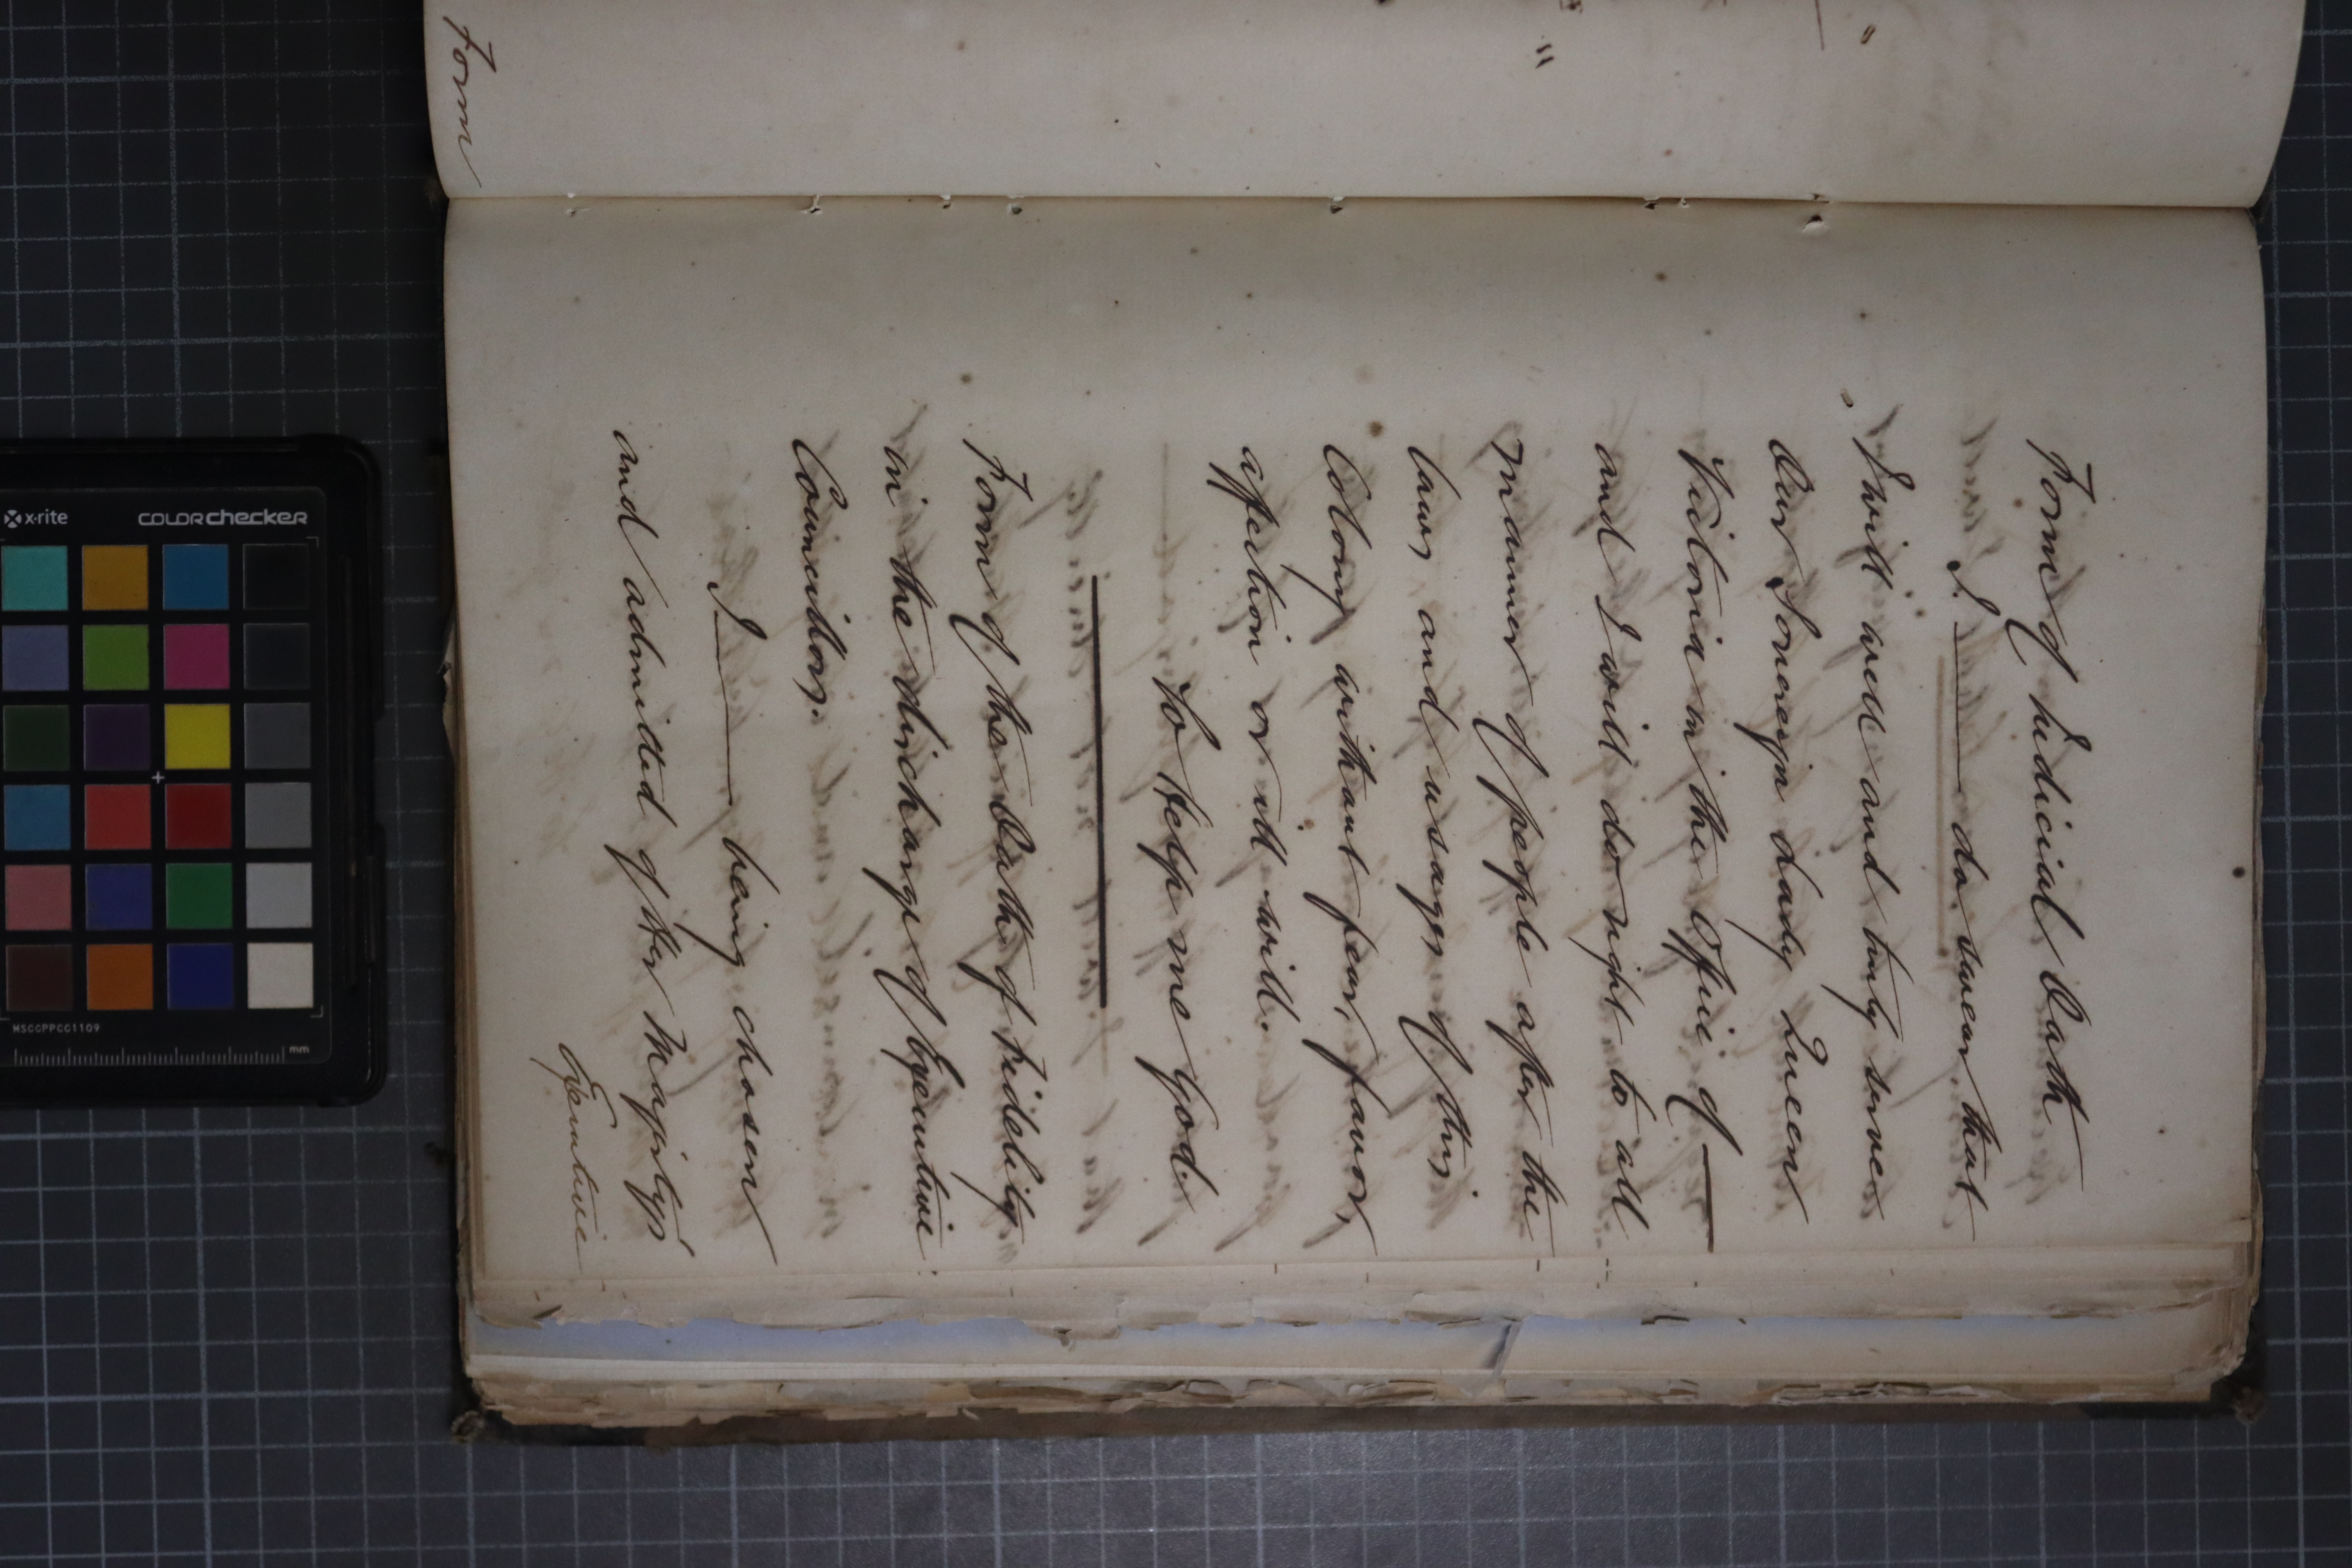 Form
Form of Judicial Oath
I ——— do swear that
I will well and truly serve
Our Sovereign Lady Queen
Victoria in the Office of ——
and I will do right to all
manner of people after the
laws and usages of this
Colony without fear, favor,
affection or ill will.
So help me God.
Form of the Oath of Fidelity
in the discharge of Executive
Councillors.
I ——— being chosen
and admitted of Her Majesty's
Executive
x-rite
COLORchecker
MSCCPPCC1109
mm